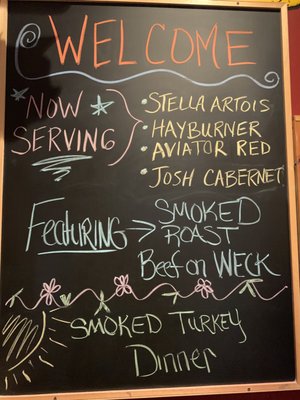 WELCOME
NOW
SERVING
• STELLA ARTOIS
• HAYBURNER
• AVIATOR RED
• JOSH CABERNET
FEATURING → SMOKED
ROAST
Beef on WECK
SMOKED TURKEY
Dinner